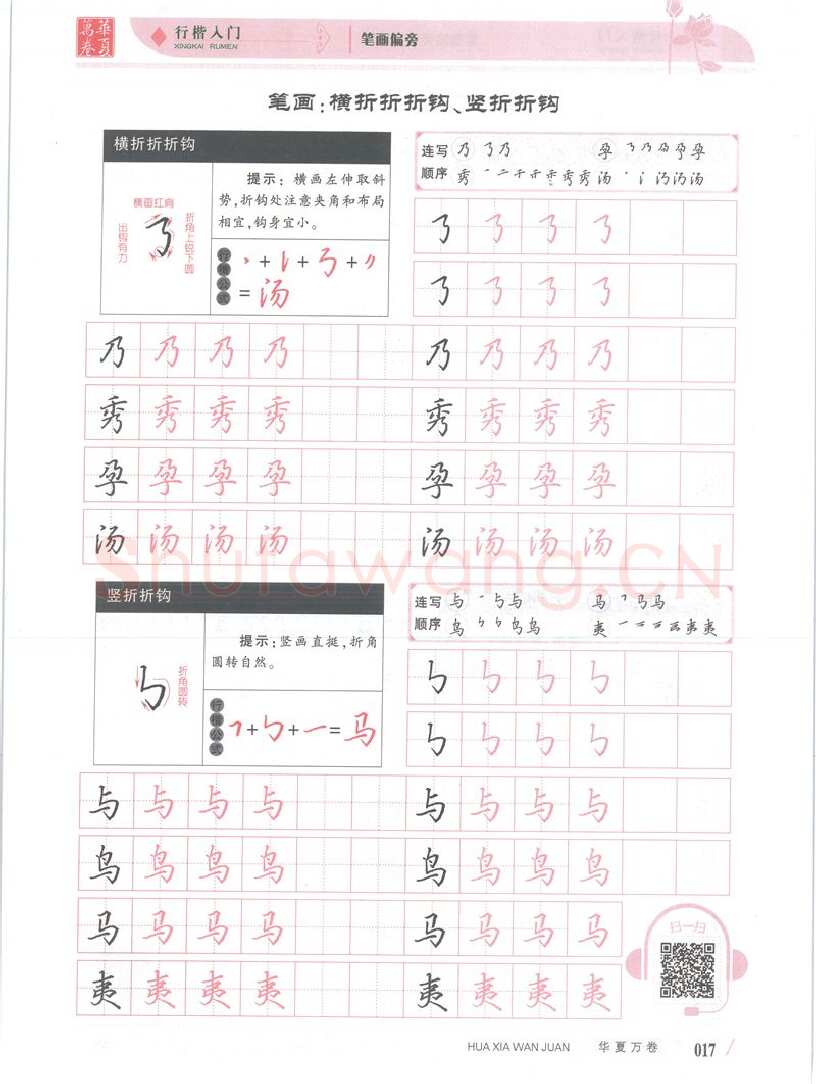 華夏萬卷
行楷入门
XINGKAI RUMEN
笔画偏旁
笔画:横折折折钩、竖折折钩
横折折折钩
提示:横画左伸取斜
势,折钩处注意夹角和布局
相宜,钩身宜小。
折角上锐下圆
出锋有力
行楷公式
丶+亅+㇡+〃
=汤
连写 乃 孕
顺序 秀 汤
乃 乃 乃 乃 乃 乃 乃 乃
秀 秀 秀 秀 秀 秀 秀 秀
孕 孕 孕 孕 孕 孕 孕 孕
汤 汤 汤 汤 汤 汤 汤 汤
shufawang.CN
竖折折钩
提示:竖画直挺,折角
圆转自然。
折角圆转
行楷公式
㇕+㇉+一=马
连写 与 马
顺序 鸟 夷
㇉ ㇉ ㇉ ㇉
㇉ ㇉ ㇉ ㇉
与 与 与 与 与 与 与 与
鸟 鸟 鸟 鸟 鸟 鸟 鸟 鸟
马 马 马 马 马 马 马 马
夷 夷 夷 夷 夷 夷 夷 夷
扫一扫
HUA XIA WAN JUAN 华夏万卷 017